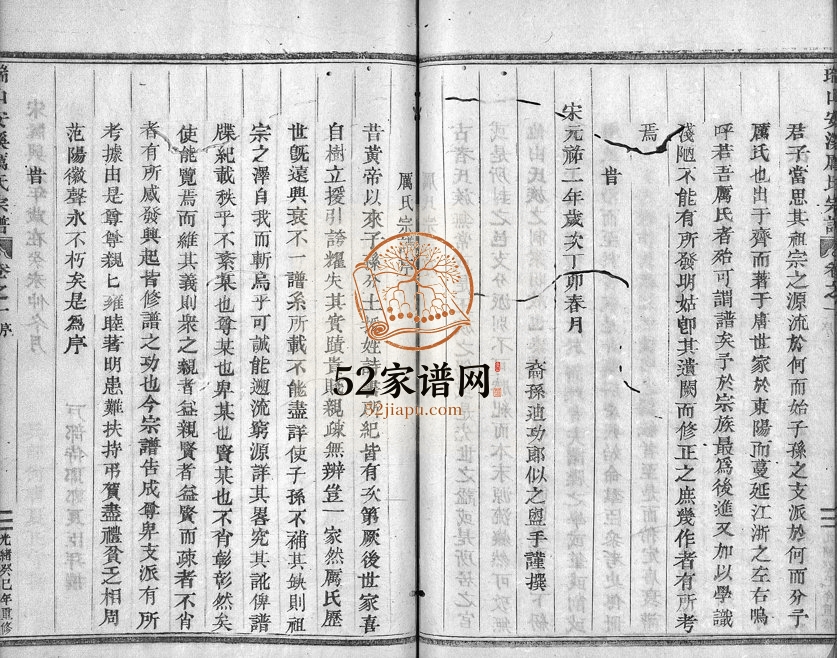 君子當思其祖宗之源流於何而始子孫之支派於何而分予
厲氏也出于齊而著于唐世家於東陽而蔓延江浙之左右嗚
呼若吾厲氏者殆可謂譜矣予於宗族最爲後進又加以學識
淺陋不能有所發明姑卽其遺闕而修正之庶幾作者有所考
焉
旹
宋元祐二年歲次丁卯春月
裔孫迪功郎似之盥手謹撰
厲氏宗譜序
昔黃帝以來子孫分土授姓諸書所紀皆有次第厥後世家喜
自樹立援引誇耀失其實蹟貴賤親疎無辨豈一家然厲氏歷
世旣遠興衰不一譜系所載不能盡詳使子孫不補其缺則祖
宗之澤自我而斬烏乎可誠能遡流窮源詳其畧究其訛俾譜
牒紀載秩乎不紊某也尊某也卑某也賢某也不肖彰彰然矣
使能覽焉而維其義則衆之親者益親賢者益賢而疎者不肖
者有所感發興起皆修譜之功也今宗譜告成尊卑支派有所
考據由是尊尊親匕雍睦著明患難扶持弔賀盡禮貧乏相周
范陽徽聲永不朽矣是爲序
旹
瑞山安溪厲氏宗譜
卷之一
序
二
光緖癸巳年重修
52家谱网
52jiapu.com